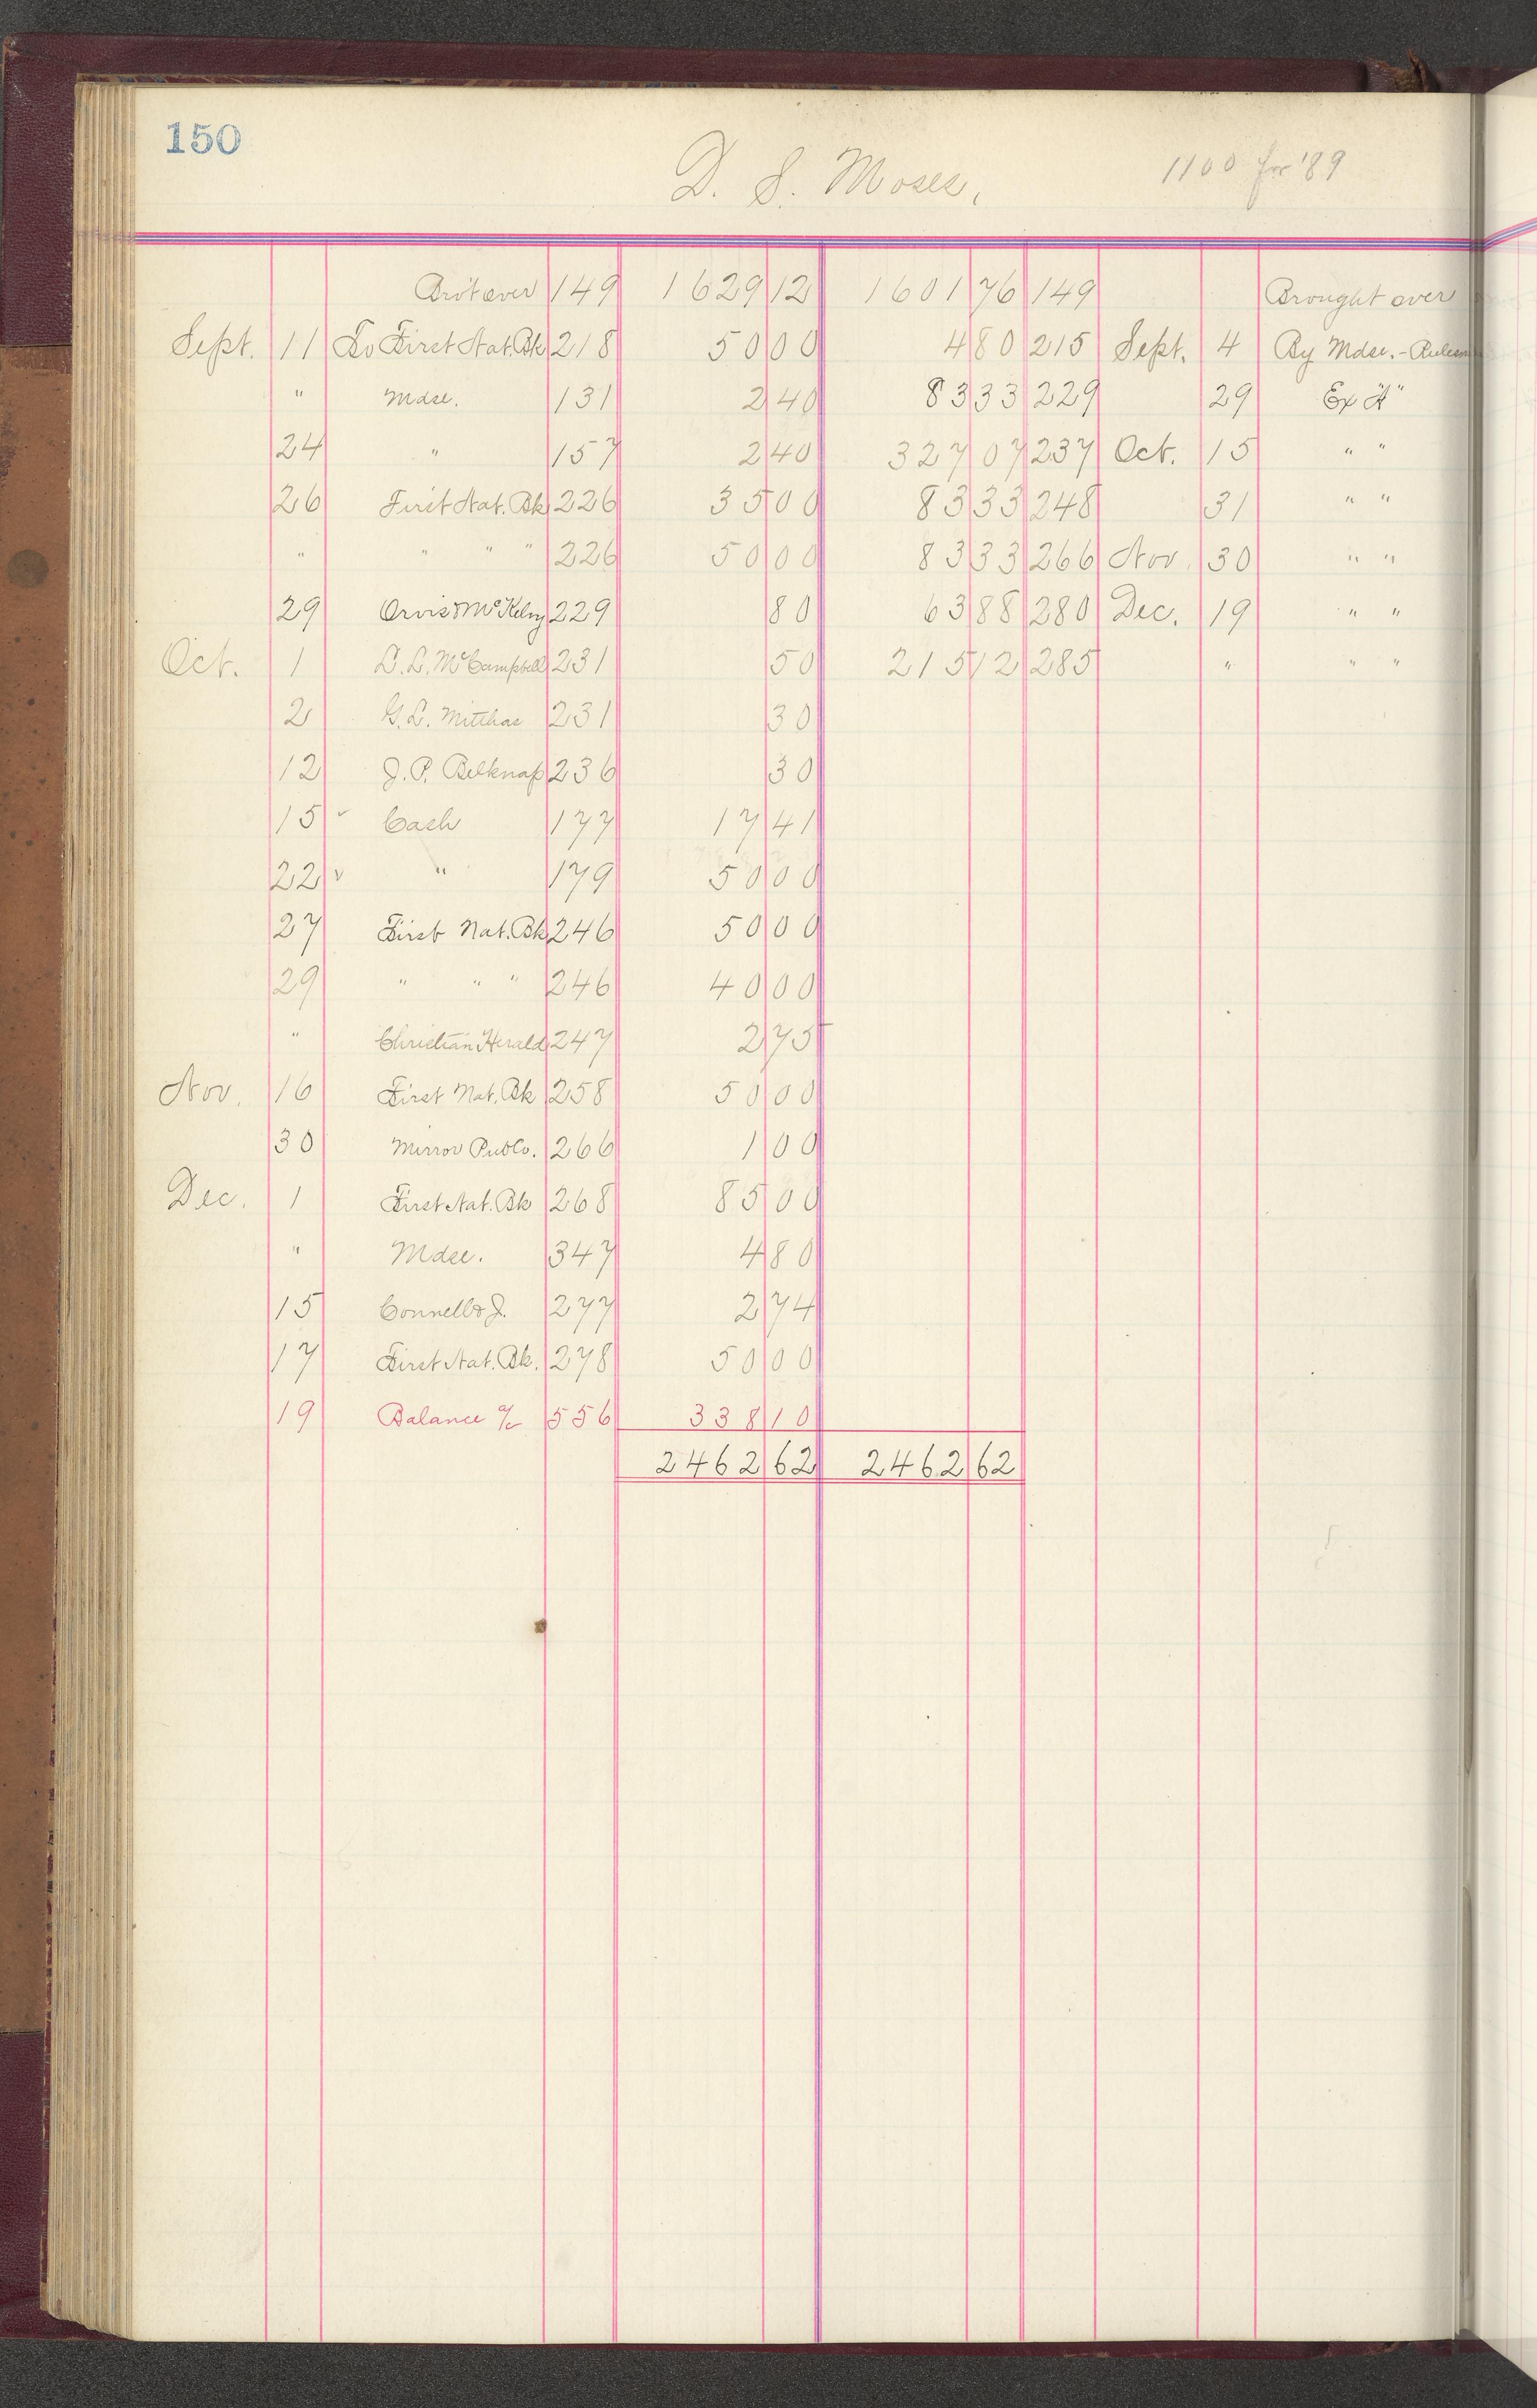 150
D. S. Moses,
1100 for '89
Bro't over 149 1629 12 1601 76 149 Brought over
Sept. 11 To First Nat. Bk 218 50 00 4 80 215 Sept. 4 By Mdse.-
" Mdse. 131 2 40 83 33 229 29 Ex "A"
24 " 157 2 40 327 07 237 Oct. 15 " "
26 First Nat. Bk 226 35 00 83 33 248 31 " "
" " " " 226 50 00 83 33 266 Nov. 30 " "
29 Orvis & McKelvy 229 80 63 88 280 Dec. 19 " "
Oct. 1 L. L. McCampbell 231 50 215 12 285 " " "
2 G. L. 231 30
12 J. P. Belknap 236 30
15 ✓ Cash 177 17 41
22 ✓ " 179 50 00
27 First Nat. Bk 246 50 00
29 " " " 246 40 00
" Christian Herald 247 2 75
Nov. 16 First Nat. Bk 258 50 00
30 Mirror Pub Co. 266 1 00
Dec. 1 First Nat. Bk 268 85 00
" Mdse. 347 4 80
15 Connell & J. 277 2 74
17 First Nat. Bk. 278 50 00
19 Balance a/c 556 338 10
2462 62 2462 62